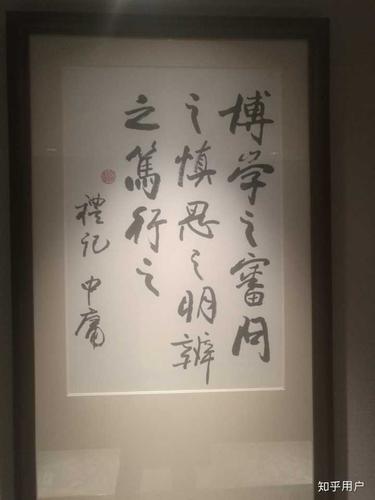 博学之審问
之慎思之明辨
之篤行之
禮记 中庸
知乎用户